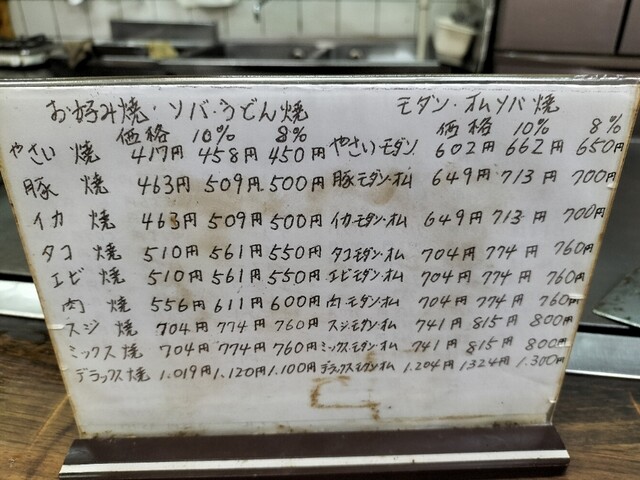 お好み焼・ソバ・うどん焼 モダン・オムソバ焼
価格 10% 8% 価格 10% 8%
やさい焼 417円 458円 450円 やさいモダン 602円 662円 650円
豚焼 463円 509円 500円 豚モダン・オム 649円 713円 700円
イカ焼 463円 509円 500円 イカモダン・オム 649円 713円 700円
タコ焼 510円 561円 550円 タコモダン・オム 704円 774円 760円
エビ焼 510円 561円 550円 エビモダン・オム 704円 774円 760円
肉焼 556円 611円 600円 肉モダン・オム 704円 774円 760円
スジ焼 704円 774円 760円 スジモダン・オム 741円 815円 800円
ミックス焼 704円 774円 760円 ミックスモダン・オム 741円 815円 800円
デラックス焼 1.019円 1.120円 1.100円 デラックスモダン・オム 1.204円 1324円 1.300円